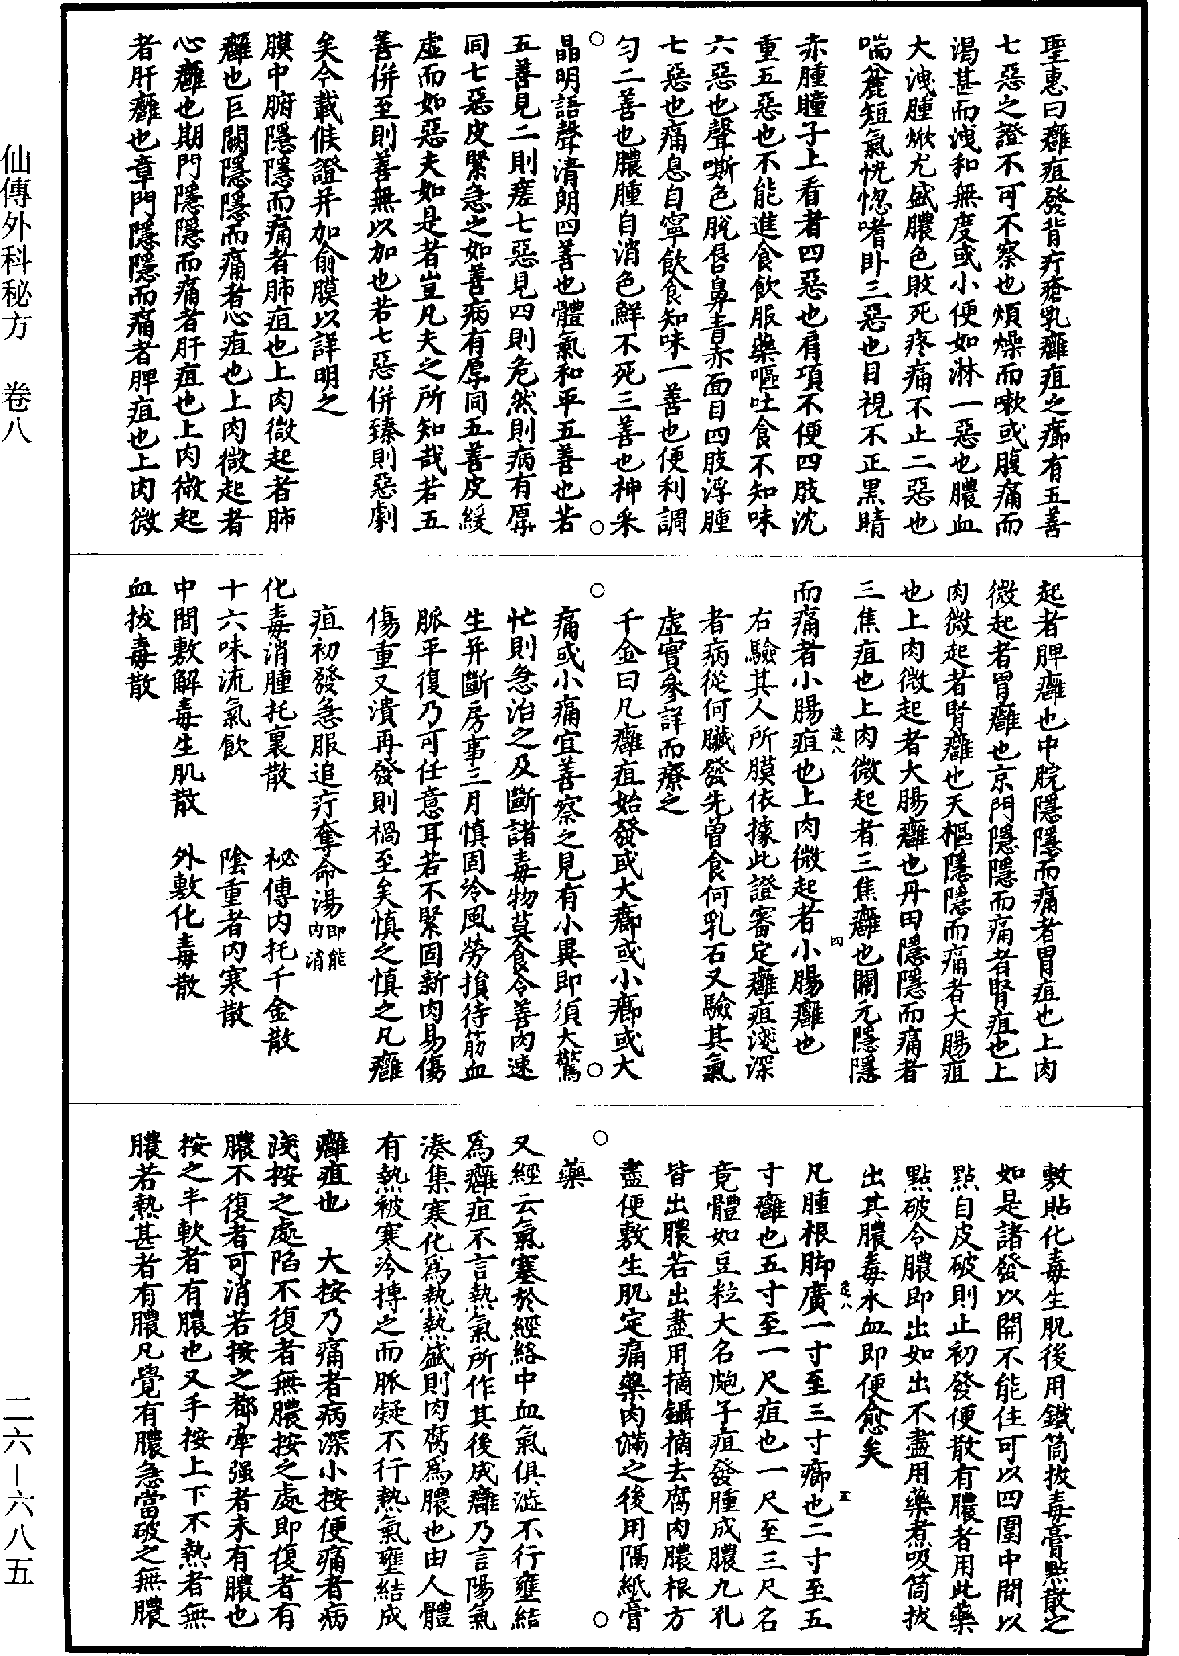 仙傳外科秘方　卷八
二六—六八五
聖惠曰癰疽發背疔瘡乳癰疽之癤有五善
七惡之證不可不察也煩燥而嗽或腹痛而
渴甚而洩和無度或小便如淋一惡也膿血
大洩腫焮尤盛膿色敗死疼痛不止二惡也
喘麄短氣恍惚嗜卧三惡也目視不正黑睛
赤腫瞳子上看者四惡也肩項不便四肢沈
重五惡也不能進食飲服藥嘔吐食不知味
六惡也聲嘶色脫唇鼻青赤面目四肢浮腫
七惡也痛息自寧飲食知味一善也便利調
勻二善也膿腫自消色鮮不死三善也神采
晶明語聲清朗四善也體氣和平五善也若
五善見二則瘥七惡見四則危然則病有厚
同七惡皮緊急之如善病有厚同五善皮緩
虛而如惡夫如是者豈凡夫之所知哉若五
善併至則善無以加也若七惡併臻則惡劇
矣今載候證并加俞膜以詳明之
膜中腑隱隱而痛者肺疽也上肉微起者肺
癰也巨闕隱隱而痛者心疽也上肉微起者
心癰也期門隱隱而痛者肝疽也上肉微起
者肝癰也章門隱隱而痛者脾疽也上肉微
起者脾癰也中脘隱隱而痛者胃疽也上肉
微起者胃癰也京門隱隱而痛者腎疽也上
肉微起者腎癰也天樞隱隱而痛者大腸疽
也上肉微起者大腸癰也丹田隱隱而痛者
三焦疽也上肉微起者三焦癰也關元隱隱
遠八　四
而痛者小腸疽也上肉微起者小腸癰也
右驗其人所膜依據此證審定癰疽淺深
者病從何臟發先曾食何乳石又驗其氣
虛實參詳而療之
千金曰凡癰疽始發或大癤或小癤或大
痛或小痛宜善察之見有小異即須大驚
忙則急治之及斷諸毒物莫食令善肉速
生并斷房事三月慎固冷風勞損待筋血
脈平復乃可任意耳若不緊固新肉易傷
傷重又潰再發則禍至矣慎之慎之凡癰
疽初發急服追疔奪命湯即能內消
化毒消腫托裏散　秘傳內托千金散
十六味流氣飲　陰重者內寒散
中間敷解毒生肌散　外敷化毒散
血拔毒散
敷貼化毒生肌後用鐵筒拔毒膏點散之
如是諸發以開不能住可以四圍中間以
點自皮破則止初發便散有膿者用此藥
點破令膿即出如出不盡用藥煮吸筒拔
出其膿毒水血即便愈矣
遠八　五
凡腫根腳廣一寸至三寸癤也二寸至五
寸癰也五寸至一尺疽也一尺至三尺名
竟體如豆粒大名皰子疽發腫成膿九孔
皆出膿若出盡用摘鑷摘去腐肉膿根方
盡便敷生肌定痛藥肉滿之後用隔紙膏
藥
又經云氣塞於經絡中血氣俱澁不行壅結
為癰疽不言熱氣所作其後成癰乃言陽氣
湊集寒化為熱熱盛則肉腐為膿也由人體
有熱被寒冷摶之而脈凝不行熱氣壅結成
癰疽也　大按乃痛者病深小按便痛者病
淺按之處陷不復者無膿按之處即復者有
膿不復者可消若按之都牢强者未有膿也
按之半軟者有膿也又手按上下不熱者無
膿若熱甚者有膿凡覺有膿急當破之無膿